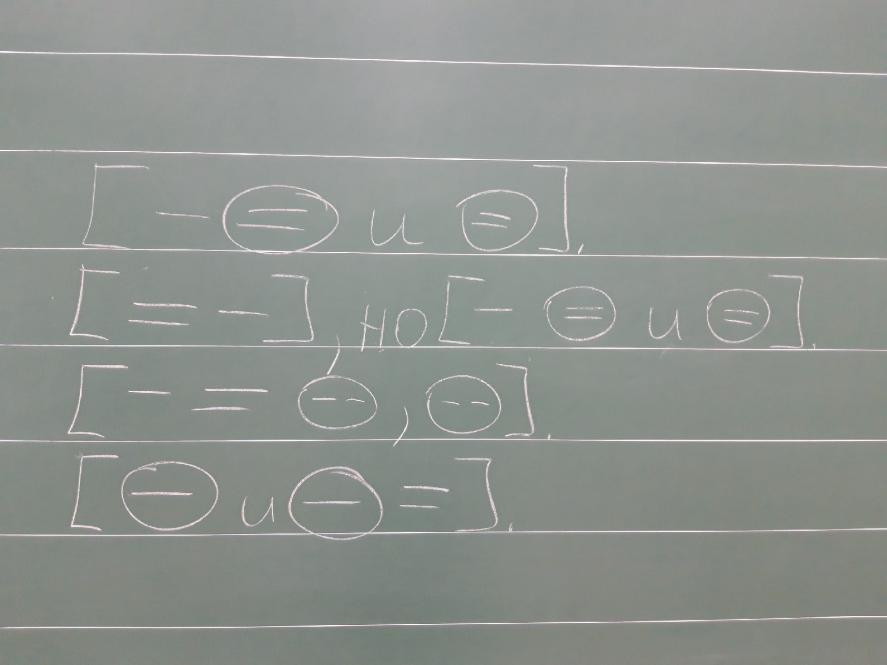 [ – = и = ].
[ = – ], но [ – = и = ].
[ – = -- , -- ].
[ – и – = ].